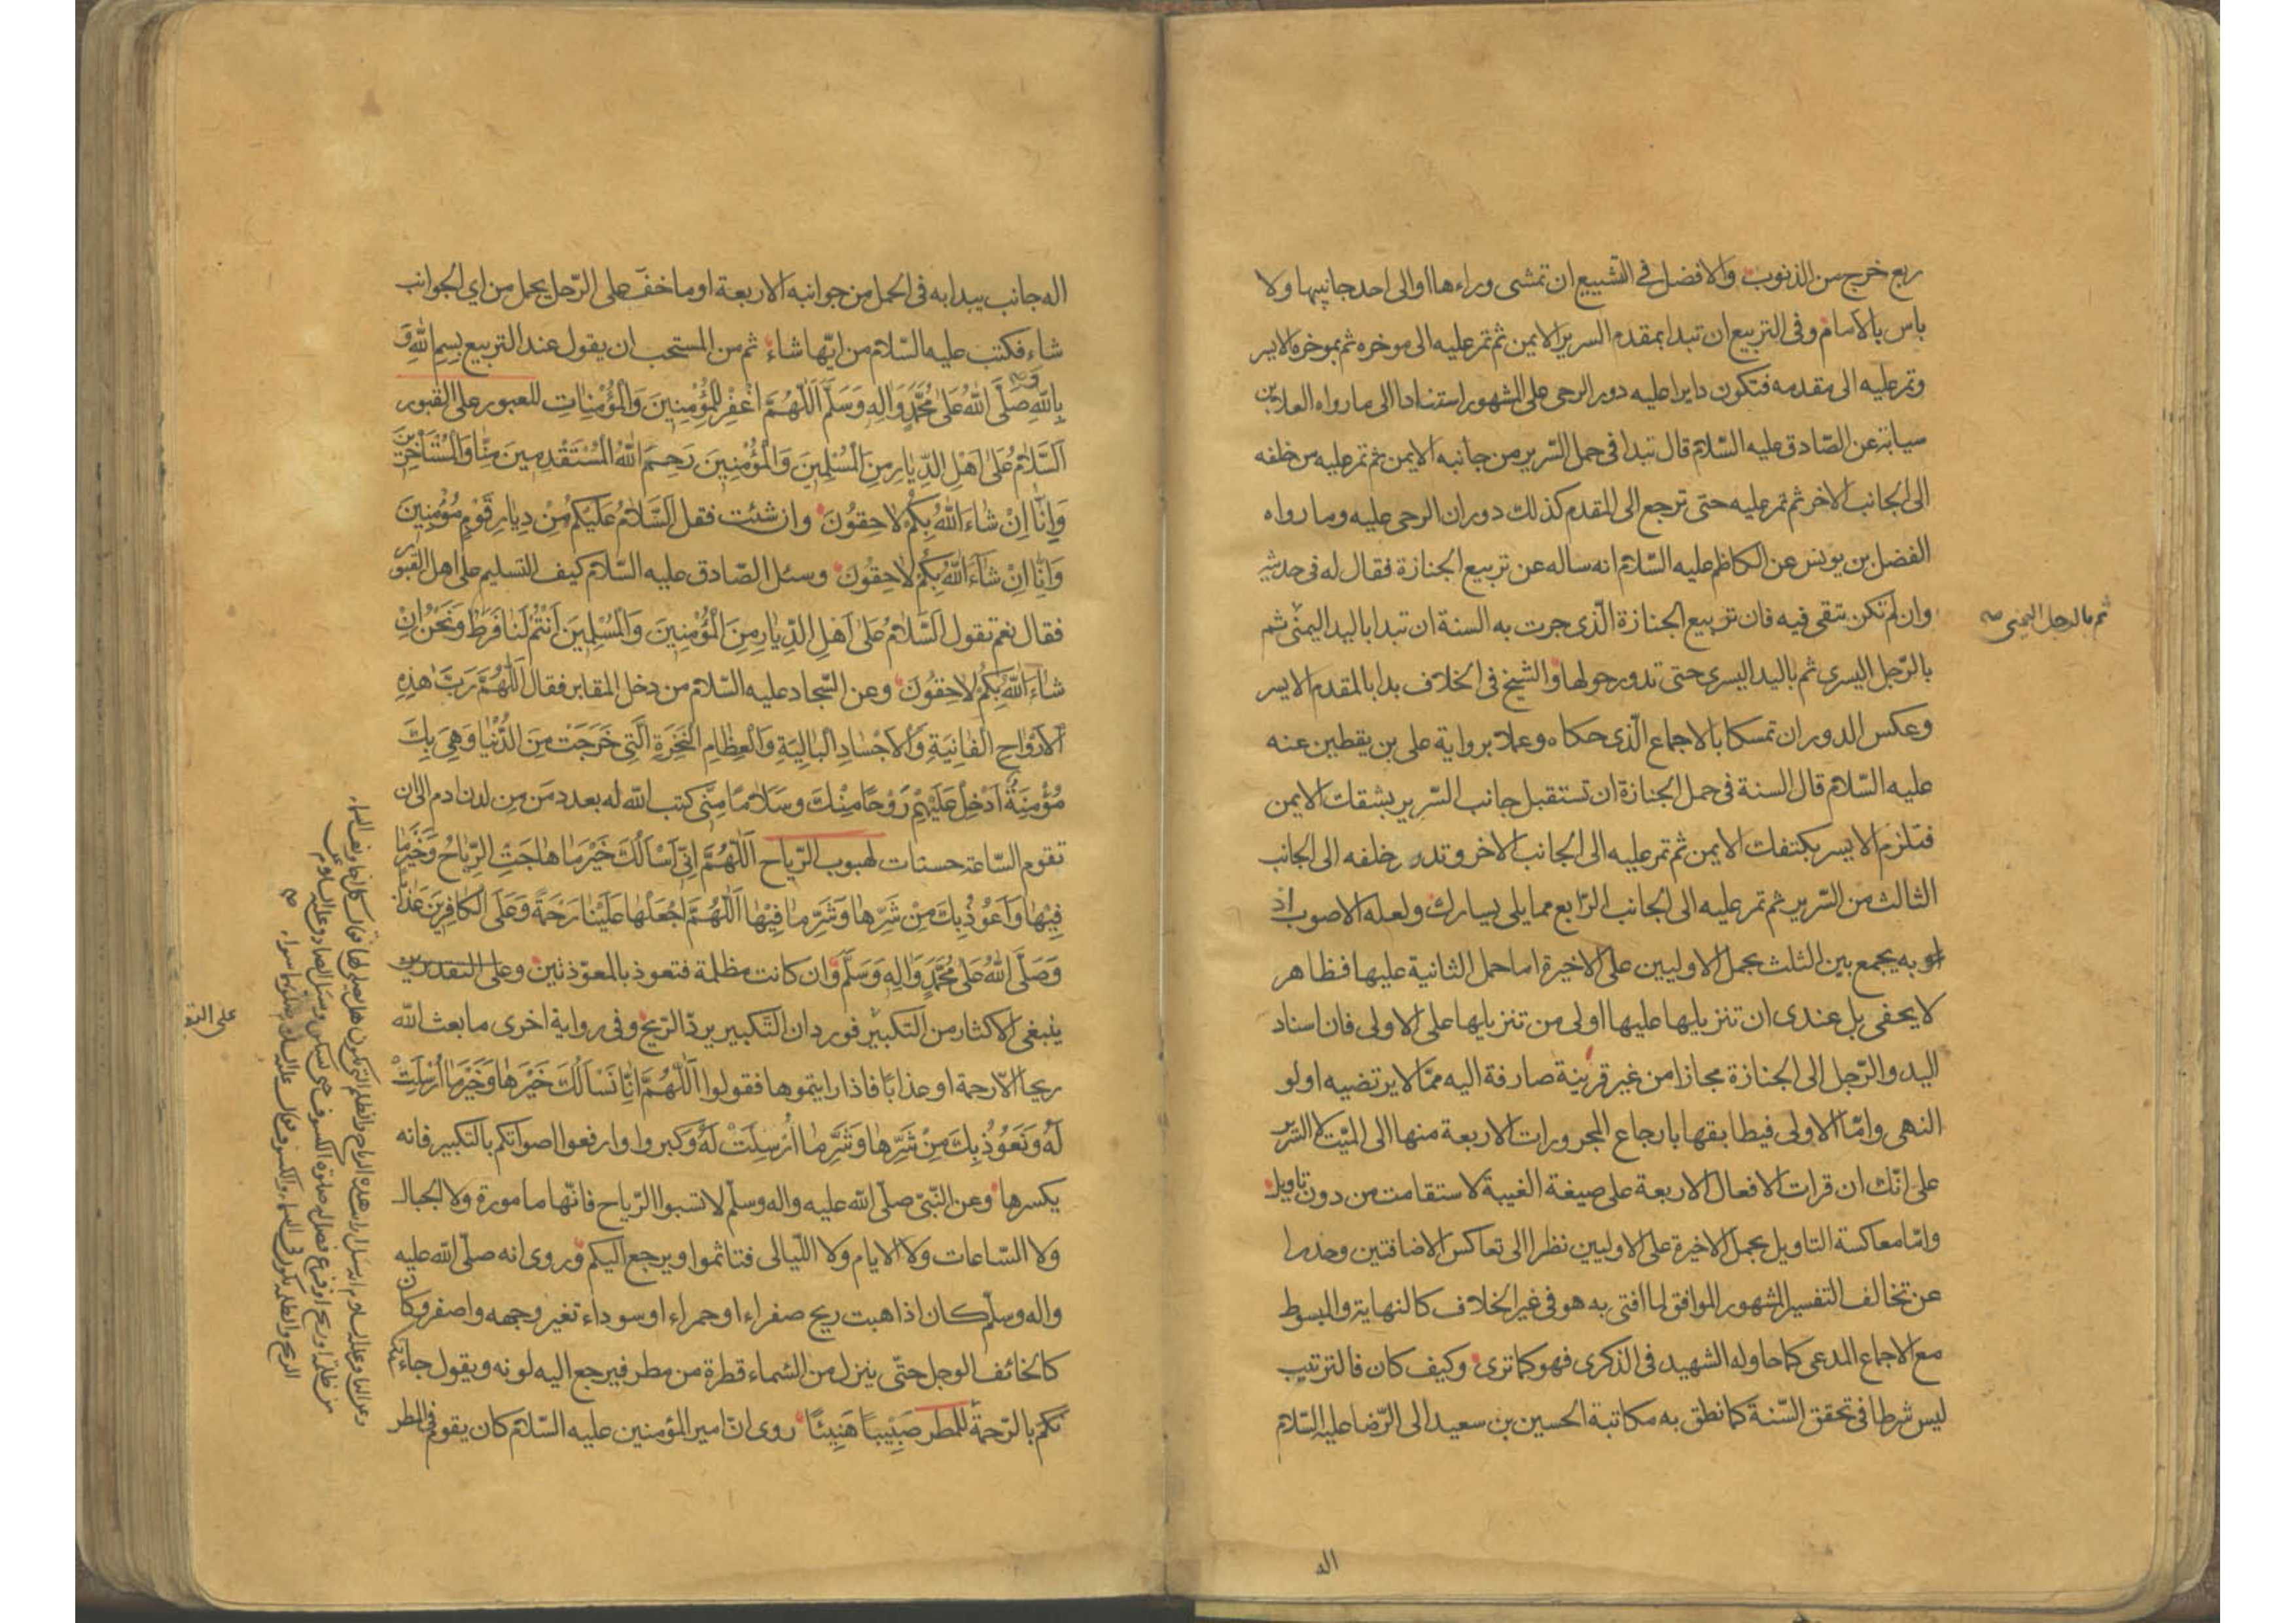 ربع خرج من الذنوب والافضل في التشييع ان تمشى وراءها او الى احد جانبيها ولا
باس بالامام وفى التربيع ان تبدا بمقدم السرير الايمن ثم تمر عليه الى موخره ثم بموخره الايسر
وتمر عليه الى مقدمه فتكون دايرا عليه دور الرحى على المشهور استنادا الى ما رواه العلا بن
سيابة عن الصّادق عليه السّلام قال تبدا فى حمل السّرير من جانبه الايمن ثم تمر عليه من خلفه
الى الجانب الاخر ثم تمر عليه حتى ترجع الى المقدم كذلك دوران الرحى عليه وما رواه
الفضل بن يونس عن الكاظم عليه السّلام انه ساله عن تربيع الجنازة فقال له فى حديث
وان لم تكن تتقى فيه فان تربيع الجنازة الّذى جرت به السنة ان تبدا باليد اليمنى ثم
ثم بالرجل اليمنى صح
بالرّجل اليسرى ثم باليد اليسرى حتى تدور حولها والشيخ فى الخلاف بدا بالمقدم الايسر
وعكس الدوران تمسكا بالاجماع الّذى حكاه وعملا برواية على بن يقطين عنه
عليه السّلام قال السنة فى حمل الجنازة ان تستقبل جانب السّرير بشقك الايمن
فتلزم الايسر بكتفك الايمن ثم تمر عليه الى الجانب الاخر وتدور خلفه الى الجانب
الثالث من السّرير ثم تمر عليه الى الجانب الرّابع مما يلى يسارك ولعله الاصوب اذ
به يجمع بين الثلث بحمل الاوليين على الاخيرة اما حمل الثانية عليها فظاهر
لا يخفى بل عندى ان تنزيلها عليها اولى من تنزيلها على الاولى فان اسناد
اليد والرّجل الى الجنازة مجازا من غير قرينة صارفة اليه ممّا لا يرتضيه اولو
النهى وامّا الاولى فيطابقها بارجاع المجرورات الاربعة منها الى الميّت لا السّرير
على انّك ان قرات الافعال الاربعة على صيغة الغيبة لاستقامت من دون تاويل
وامّا معاكسة التاويل بحمل الاخيرة على الاوليين نظرا الى تعاكس الاضافتين وحذرا
عن تخالف التفسير المشهور الموافق لما افتى به هو فى غير الخلاف كالنهاية والمبسوط
مع الاجماع المدعى كما حاوله الشهيد فى الذكرى فهو كما ترى وكيف كان فالترتيب
ليس شرطا فى تحقق السّنة كما نطق به مكاتبة الحسين بن سعيد الى الرّضا عليه السّلام
اله
اله جانب يبدا به فى الحمل من جوانبه الاربعة او ما خفّ على الرّجل يحمل من اى الجوانب
شاء فكتب عليه السّلام من ايّها شاء ثم من المستحب ان يقول عند التربيع بِسْمِ اللهِ وَ
بِاللهِ صَلَّى اللهُ عَلى مُحَمَّدٍ وَالِهِ وَسَلَّمَ اَللّهُمَّ اغْفِرْ لِلْمُؤْمِنِينَ وَالْمُؤْمِناتِ للعبور على القبور
اَلسَّلامُ عَلى اَهْلِ الدِّيارِ مِنَ الْمُسْلِمِينَ وَالْمُؤْمِنِينَ رَحِمَ اللهُ الْمُسْتَقْدِمِينَ مِنّا وَالْمُسْتَأْخِرِينَ
وَاِنّا اِنْ شاءَ اللهُ بِكُمْ لاحِقُونَ وان شئت فقل اَلسَّلامُ عَلَيْكُمْ مِنْ دِيارِ قَوْمٍ مُؤْمِنِينَ
وَاِنّا اِنْ شاءَ اللهُ بِكُمْ لاحِقُونَ وسئل الصّادق عليه السّلام كيف التسليم على اهل القبور
فقال نعم تقول اَلسَّلامُ عَلى اَهْلِ الدِّيارِ مِنَ الْمُؤْمِنِينَ وَالْمُسْلِمِينَ اَنْتُمْ لَنا فَرَطٌ وَنَحْنُ اِنْ
شاءَ اللهُ بِكُمْ لاحِقُونَ وعن السّجاد عليه السّلام من دخل المقابر فقال اَللّهُمَّ رَبَّ هذِهِ
الْاَرْواحِ الْفانِيَةِ وَالْاَجْسادِ الْبالِيَةِ وَالْعِظامِ النَّخِرَةِ الَّتِى خَرَجَتْ مِنَ الدُّنْيا وَهِىَ بِكَ
مُؤْمِنَةٌ اَدْخِلْ عَلَيْهِمْ رَوْحًا مِنْكَ وَسَلامًا مِنِّى كتب الله له بعدد مَن مِن لدن ادم الى ان
تقوم السّاعة حسنات لهبوب الرّياح اَللّهُمَّ اِنِّى اَسْاَلُكَ خَيْرَ ما هاجَتْ الرِّياحُ وَخَيْرَ ما
فِيها وَاَعُوذُ بِكَ مِنْ شَرِّها وَشَرِّ ما فِيها اَللّهُمَّ اجْعَلْها عَلَيْنا رَحْمَةً وَعَلَى الْكافِرِينَ عَذابًا
وَصَلَّى اللهُ عَلى مُحَمَّدٍ وَالِهِ وَسَلَّمَ وان كانت مظلمة فتعوذ بالمعوّذتين وعلى التقديرين
ينبغى الاكثار من التكبير فورد ان التّكبير يردّ الرّيح وفى رواية اخرى ما بعث الله
ريحا الا رحمة او عذابا فاذا رايتموها فقولوا اَللّهُمَّ اِنّا نَسْاَلُكَ خَيْرَها وَخَيْرَ ما اُرْسِلَتْ
لَهُ وَنَعُوذُ بِكَ مِنْ شَرِّها وَشَرِّ ما اُرْسِلَتْ لَهُ وكبروا وارفعوا اصواتكم بالتكبير فانه
يكسرها وعن النّبىّ صلّى الله عليه واله وسلّم لا تسبوا الرّياح فانّها مامورة ولا الجبال
ولا السّاعات ولا الايام ولا اللّيالى فتاثموا ويرجع اليكم وروى انه صلّى الله عليه
واله وسلّم كان اذا هبت ريح صفراء او حمراء او سوداء تغير وجهه واصفر وكان
كالخائف الوجل حتّى ينزل من السّماء قطرة من مطر فيرجع اليه لونه ويقول جاءتكم
بالرّحمة للمطر صَبِيبًا هَنِيئًا روى انّ امير المؤمنين عليه السّلام كان يقوم فى المطر